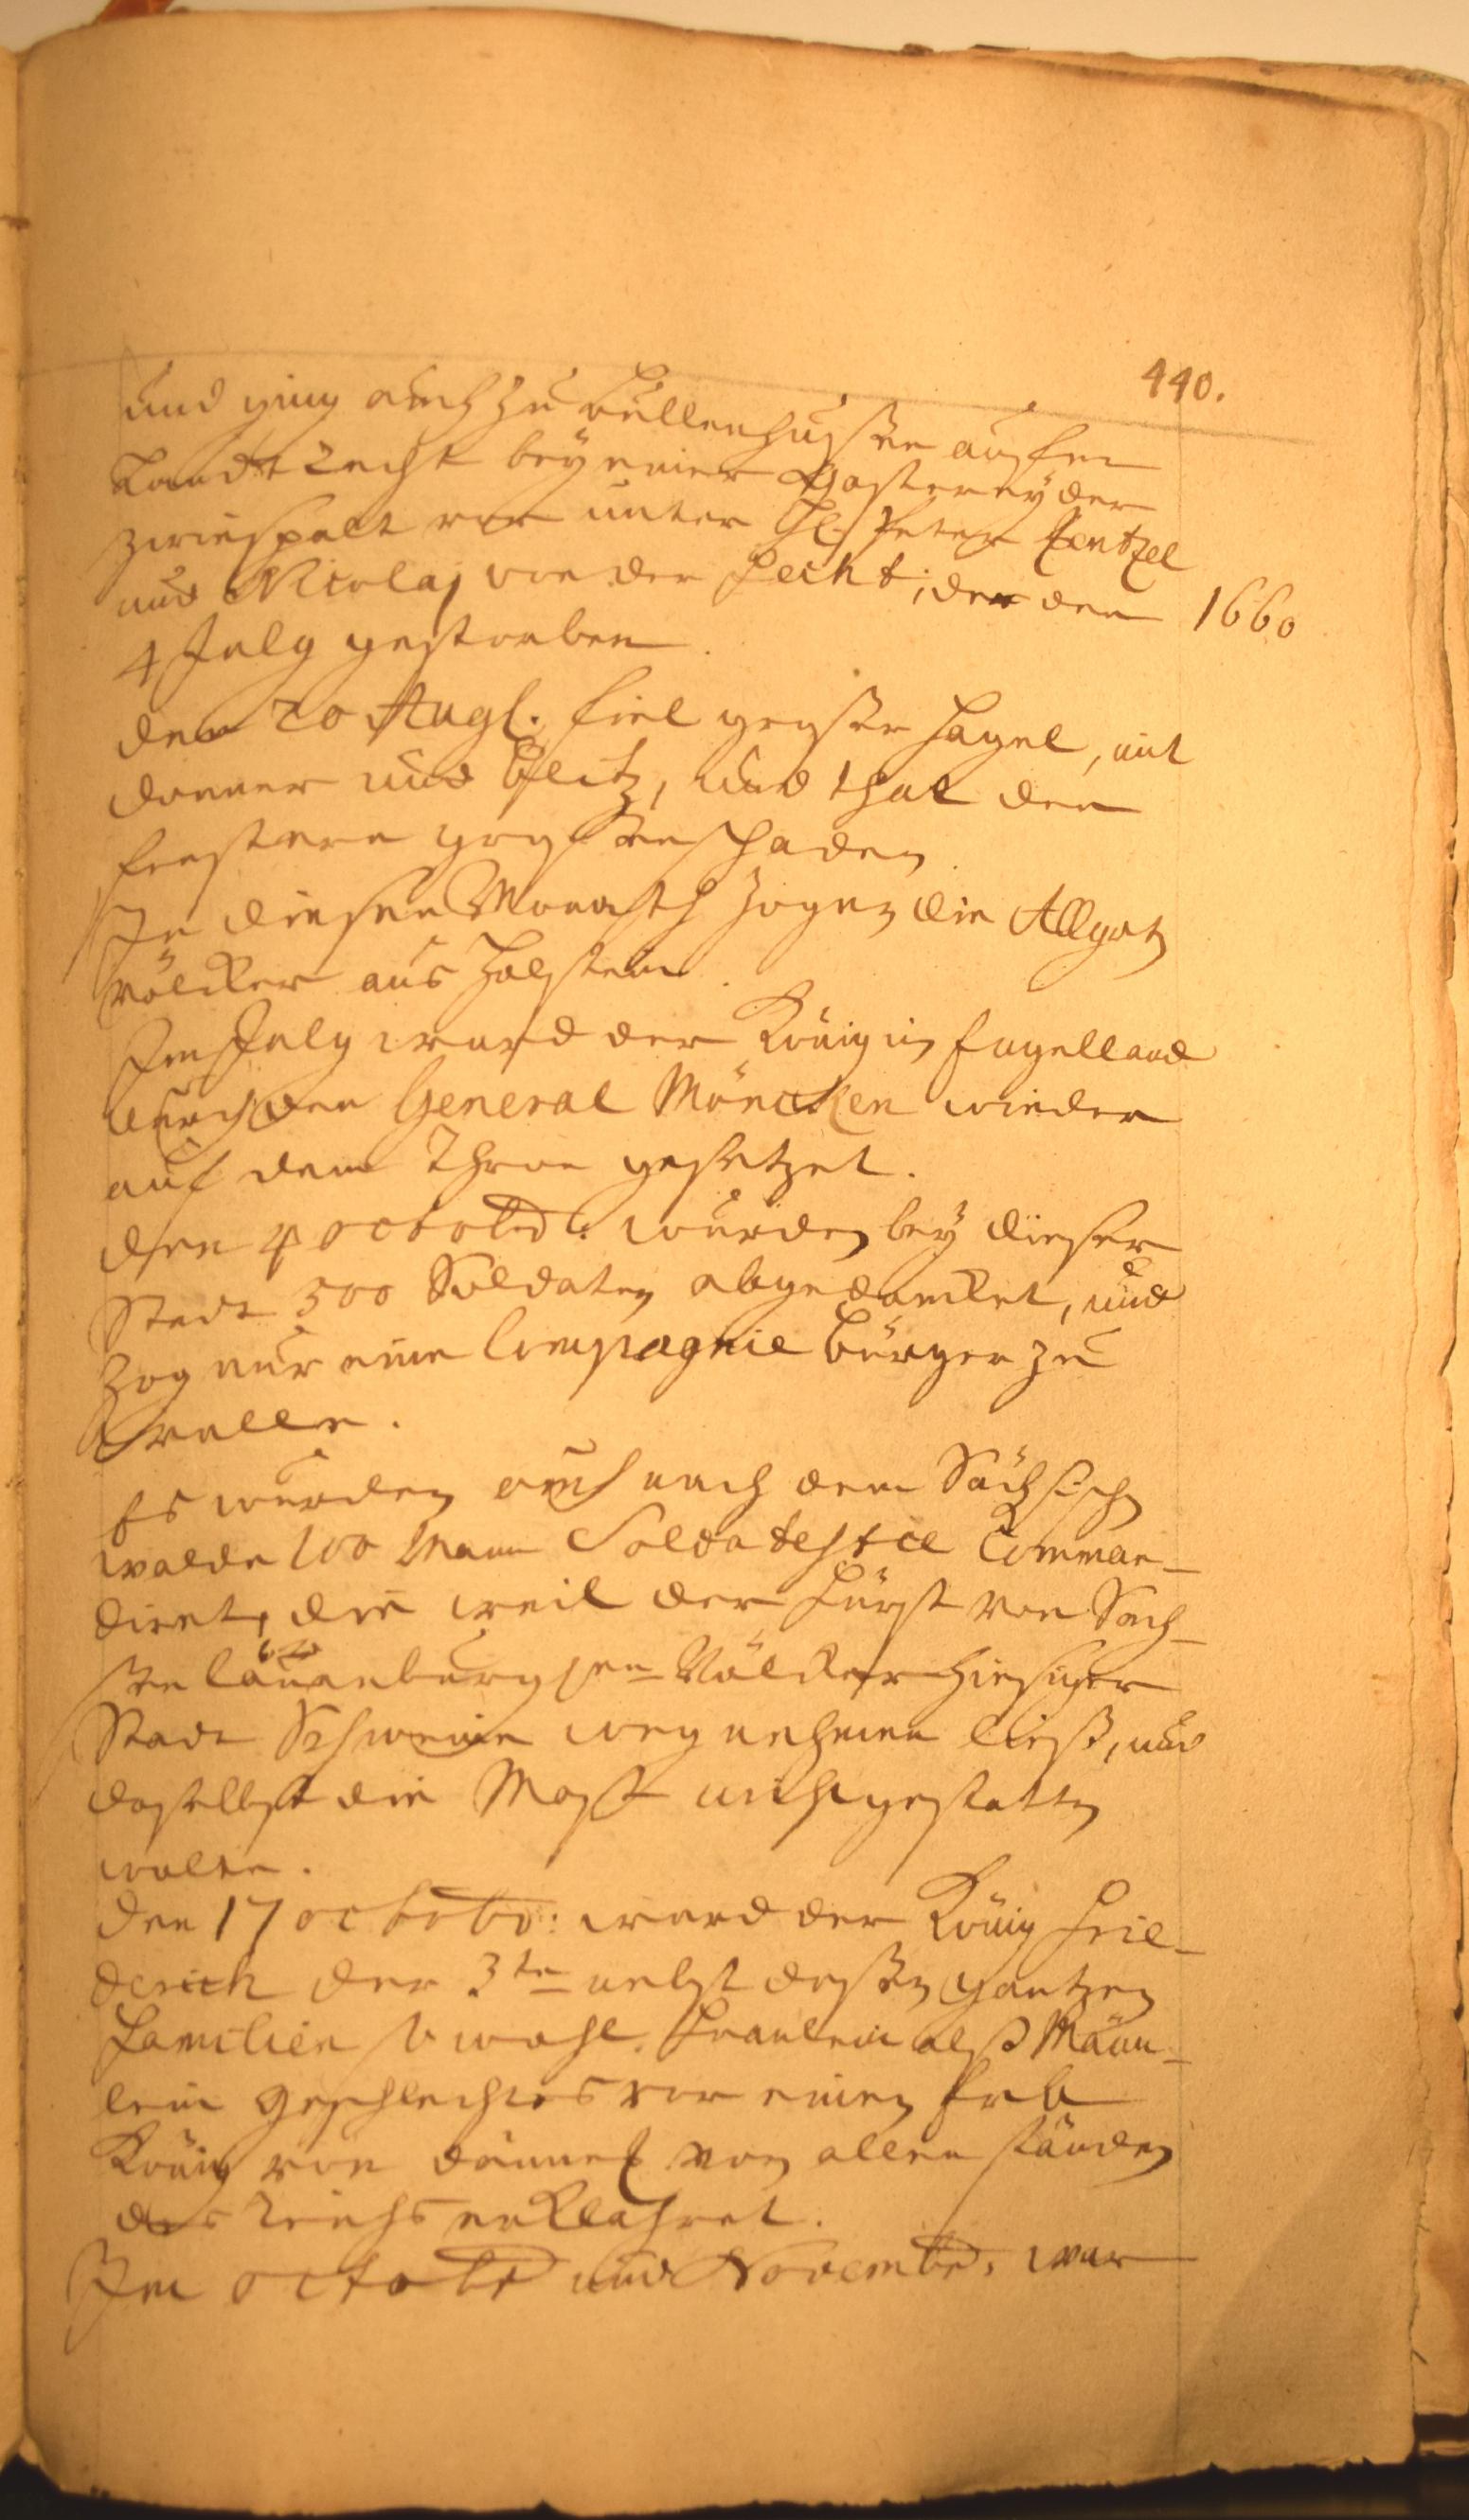 440.
und ging auch zu Bullenhusen auf em
Landt Recht bey einer Gasterey der
zwiespalt vor unter Hl. Peter Rentzel
und Nicolaj von der Fecht; der den
1660
4 July gestorben.
den 20 Augl. fiel grosser Hagel, mit
donner und Blitz, und that den
fenstern grossen schaden
In diesen Monath zogen die Allyrt
völcker aus Holstein.
Im July ward der König in Engelland
durch den General Möncken wieder
auf dem Thron gesetzet.
den 4 octobr: wurden bey dieser
Stadt 500 Soldaten abgedancket, und
zog nur eine Compagnie Bürger zu
walle.
Es wurden auch nach dem Sächsisch
walde 100 Mann Soldatesce Comman-
diret, die weil der Fürst von Sach-
sen Lauenburg sen Völcker hiesiger
Stadt Schweine weg nehmen liess, und
daselbst die Mast nich gestatten
wolte.
den 17 octobr: ward der König Frie-
derich der 3te nebst dessen gantzen
Familien so wohl Fraulein alss Männ-
lein geschlechtes vor einen Erb
König von Dännem: von allen ständen
des Reichs erklahret.
Im octobr und Novembr. war